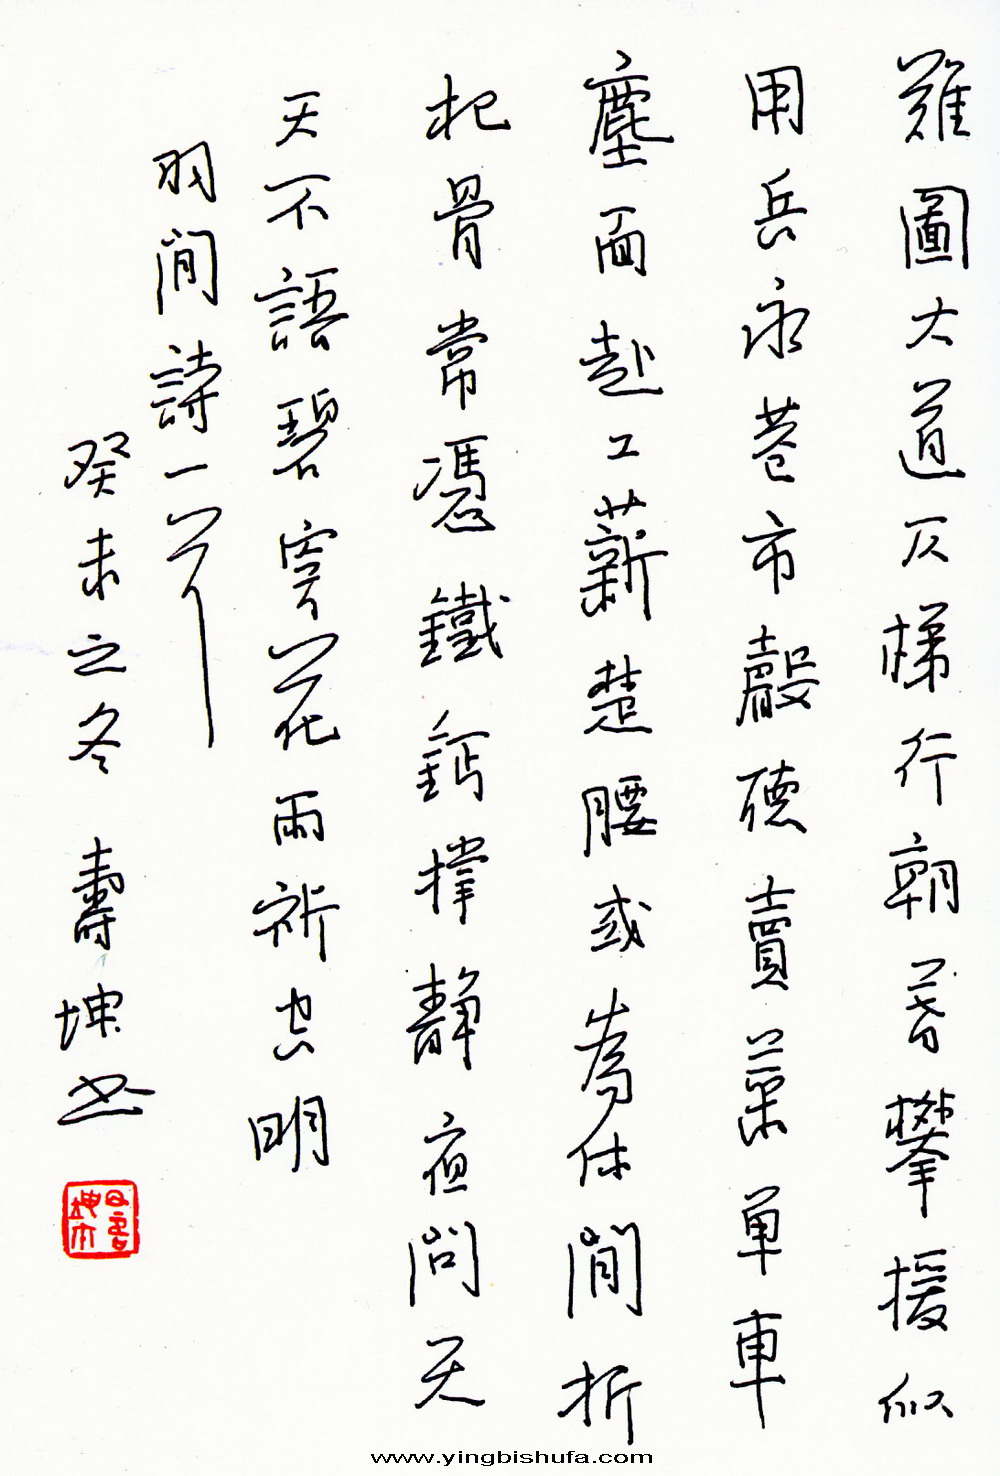 難圖大道仄梯行朝暮攀援似
用兵永巷市聲聽賣菜單車
塵面赴工薪楚腰或為休閒折
杞骨常憑鐵鈣撐靜夜問天
天不語碧穹花雨祈空明
羽閒詩一首
癸未之冬 壽坤书
www.yingbishufa.com